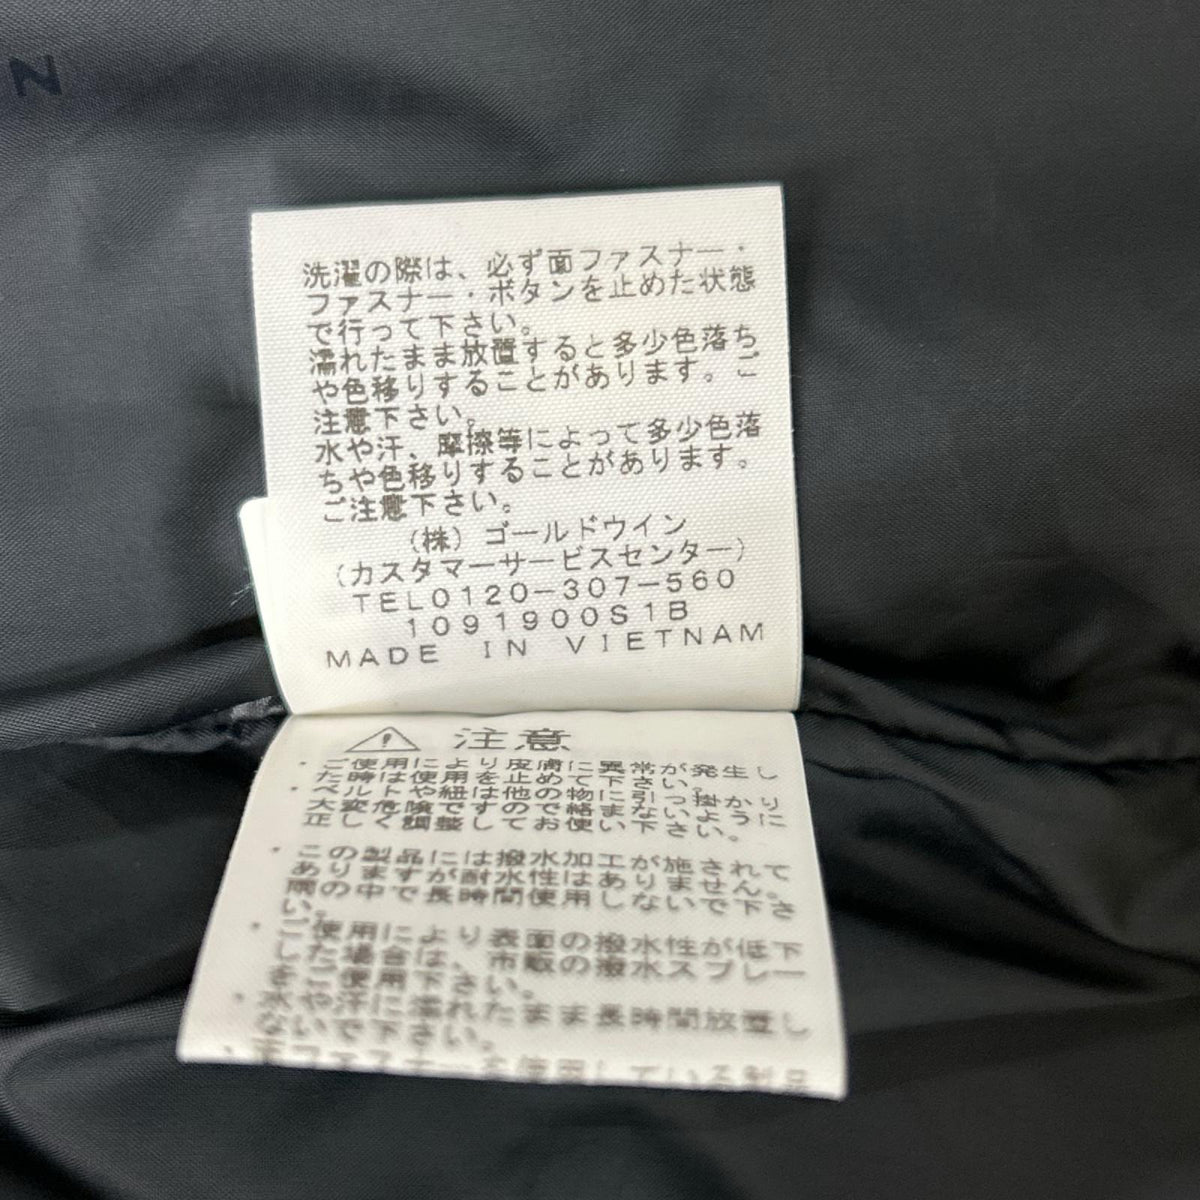 N
洗濯の際は、必ず面ファスナー・
ファスナー・ボタンを止めた状態
で行って下さい。
濡れたまま放置すると多少色落ち
や色移りすることがあります。ご
注意下さい。
水や汗、摩擦等によって多少色落
ちや色移りすることがあります。
ご注意下さい。
(株)ゴールドウイン
(カスタマーサービスセンター)
TEL0120-307-560
1091900S1B
MADE IN VIETNAM
注意
・ご使用により皮膚に異常が発生し
た時は使用を止めて下さい。
・ベルトや紐は他の物に引っ掛かり
大変危険ですので絡まないように
正しく調整してお使い下さい。
・この製品には撥水加工が施されて
ありますが耐水性はありません。
雨の中で長時間使用しないで下さ
い。
・ご使用により表面の撥水性が低下
した場合は、市販の撥水スプレー
をご使用下さい。
・水や汗に濡れたまま長時間放置し
ないで下さい。
・面ファスナーを使用している製品